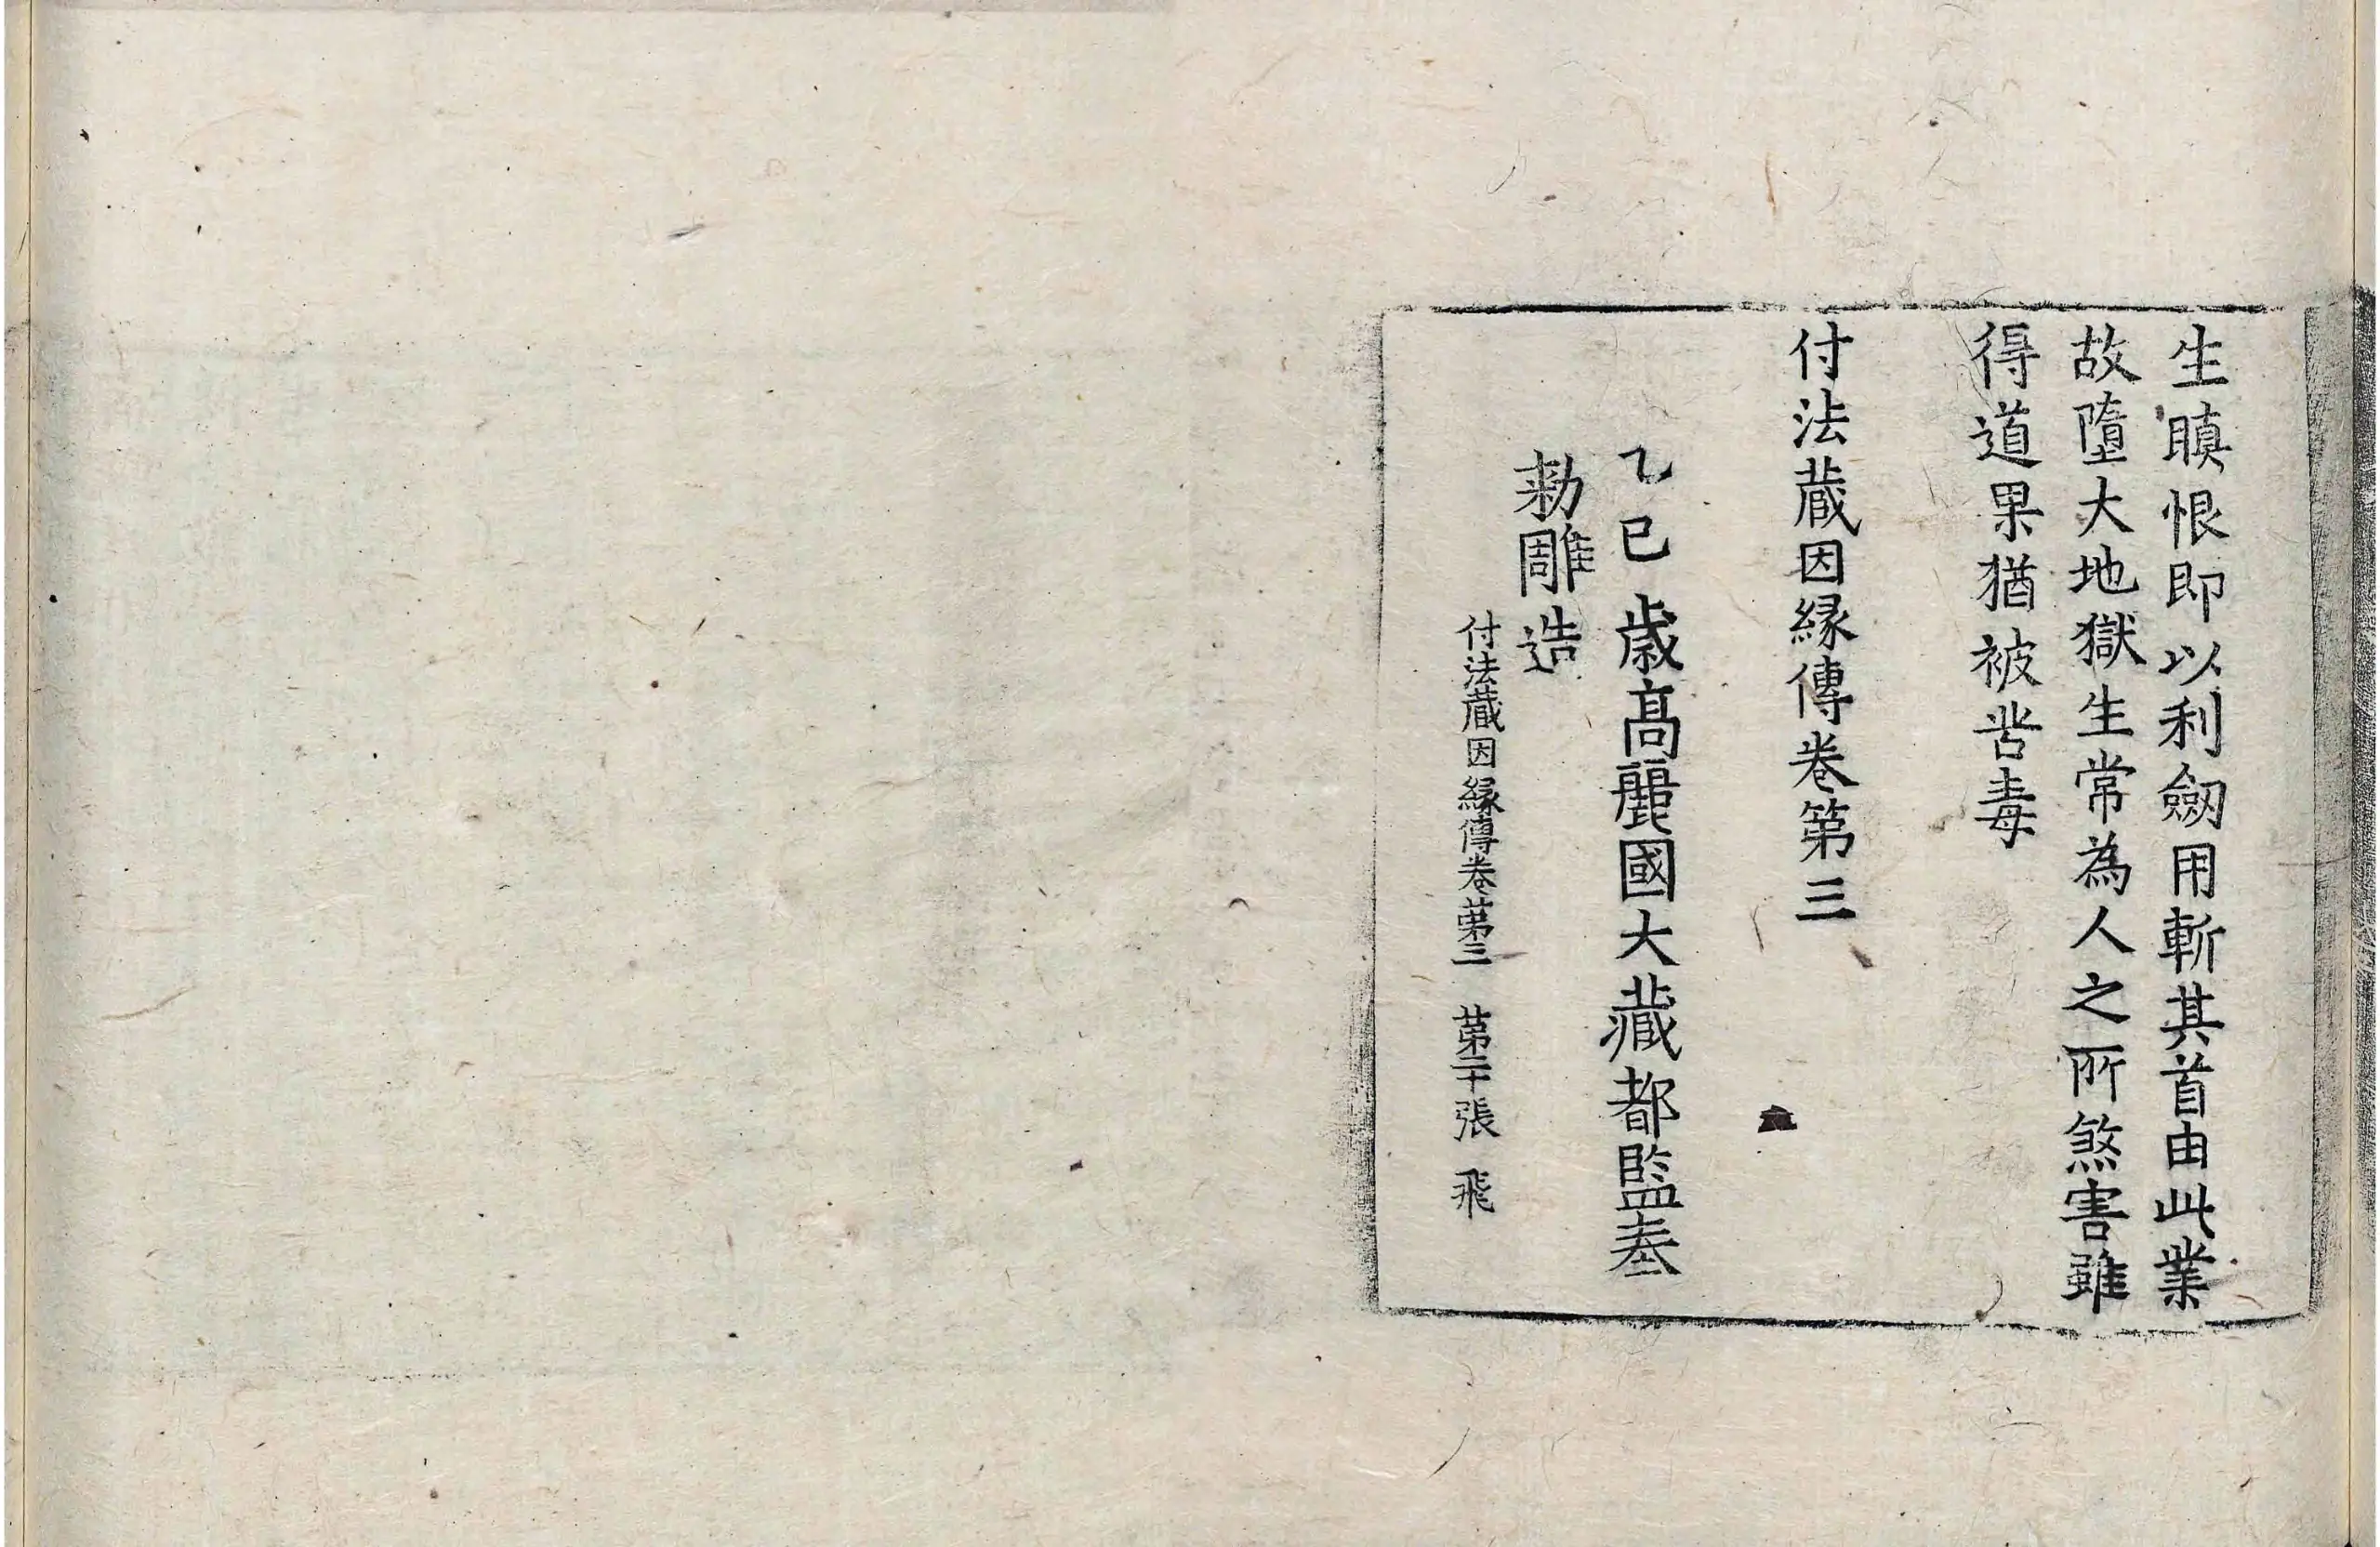 生瞋恨即以利劒用斬其首由此業
故墮大地獄生常為人之所煞害雖
得道果猶被苦毒
付法藏因縁傳卷第三
乙巳歳髙麗國大藏都監奉
勑雕造
付法藏因縁傳卷第三 第二十張 飛